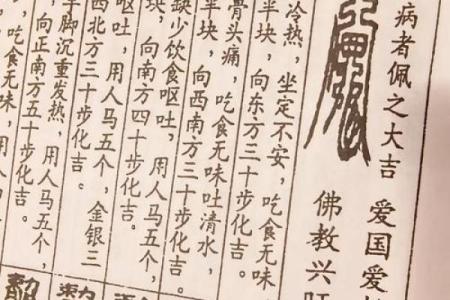 病者佩之大吉 爱国爱
佛教兴
冷热，坐定不安，吃食无味
半块，向东方三十步化吉。
骨头痛，吃食无味吐清水，
半块，向西南方三十步化吉。
缺少饮食呕吐，用人马五个，
块，向南方四十步化吉。
呕吐，用人马五个，金银三
西北方三十步化吉。
手脚沉重发热，用人马五个，
向正南方五十步化吉。
，吃食无味，用人